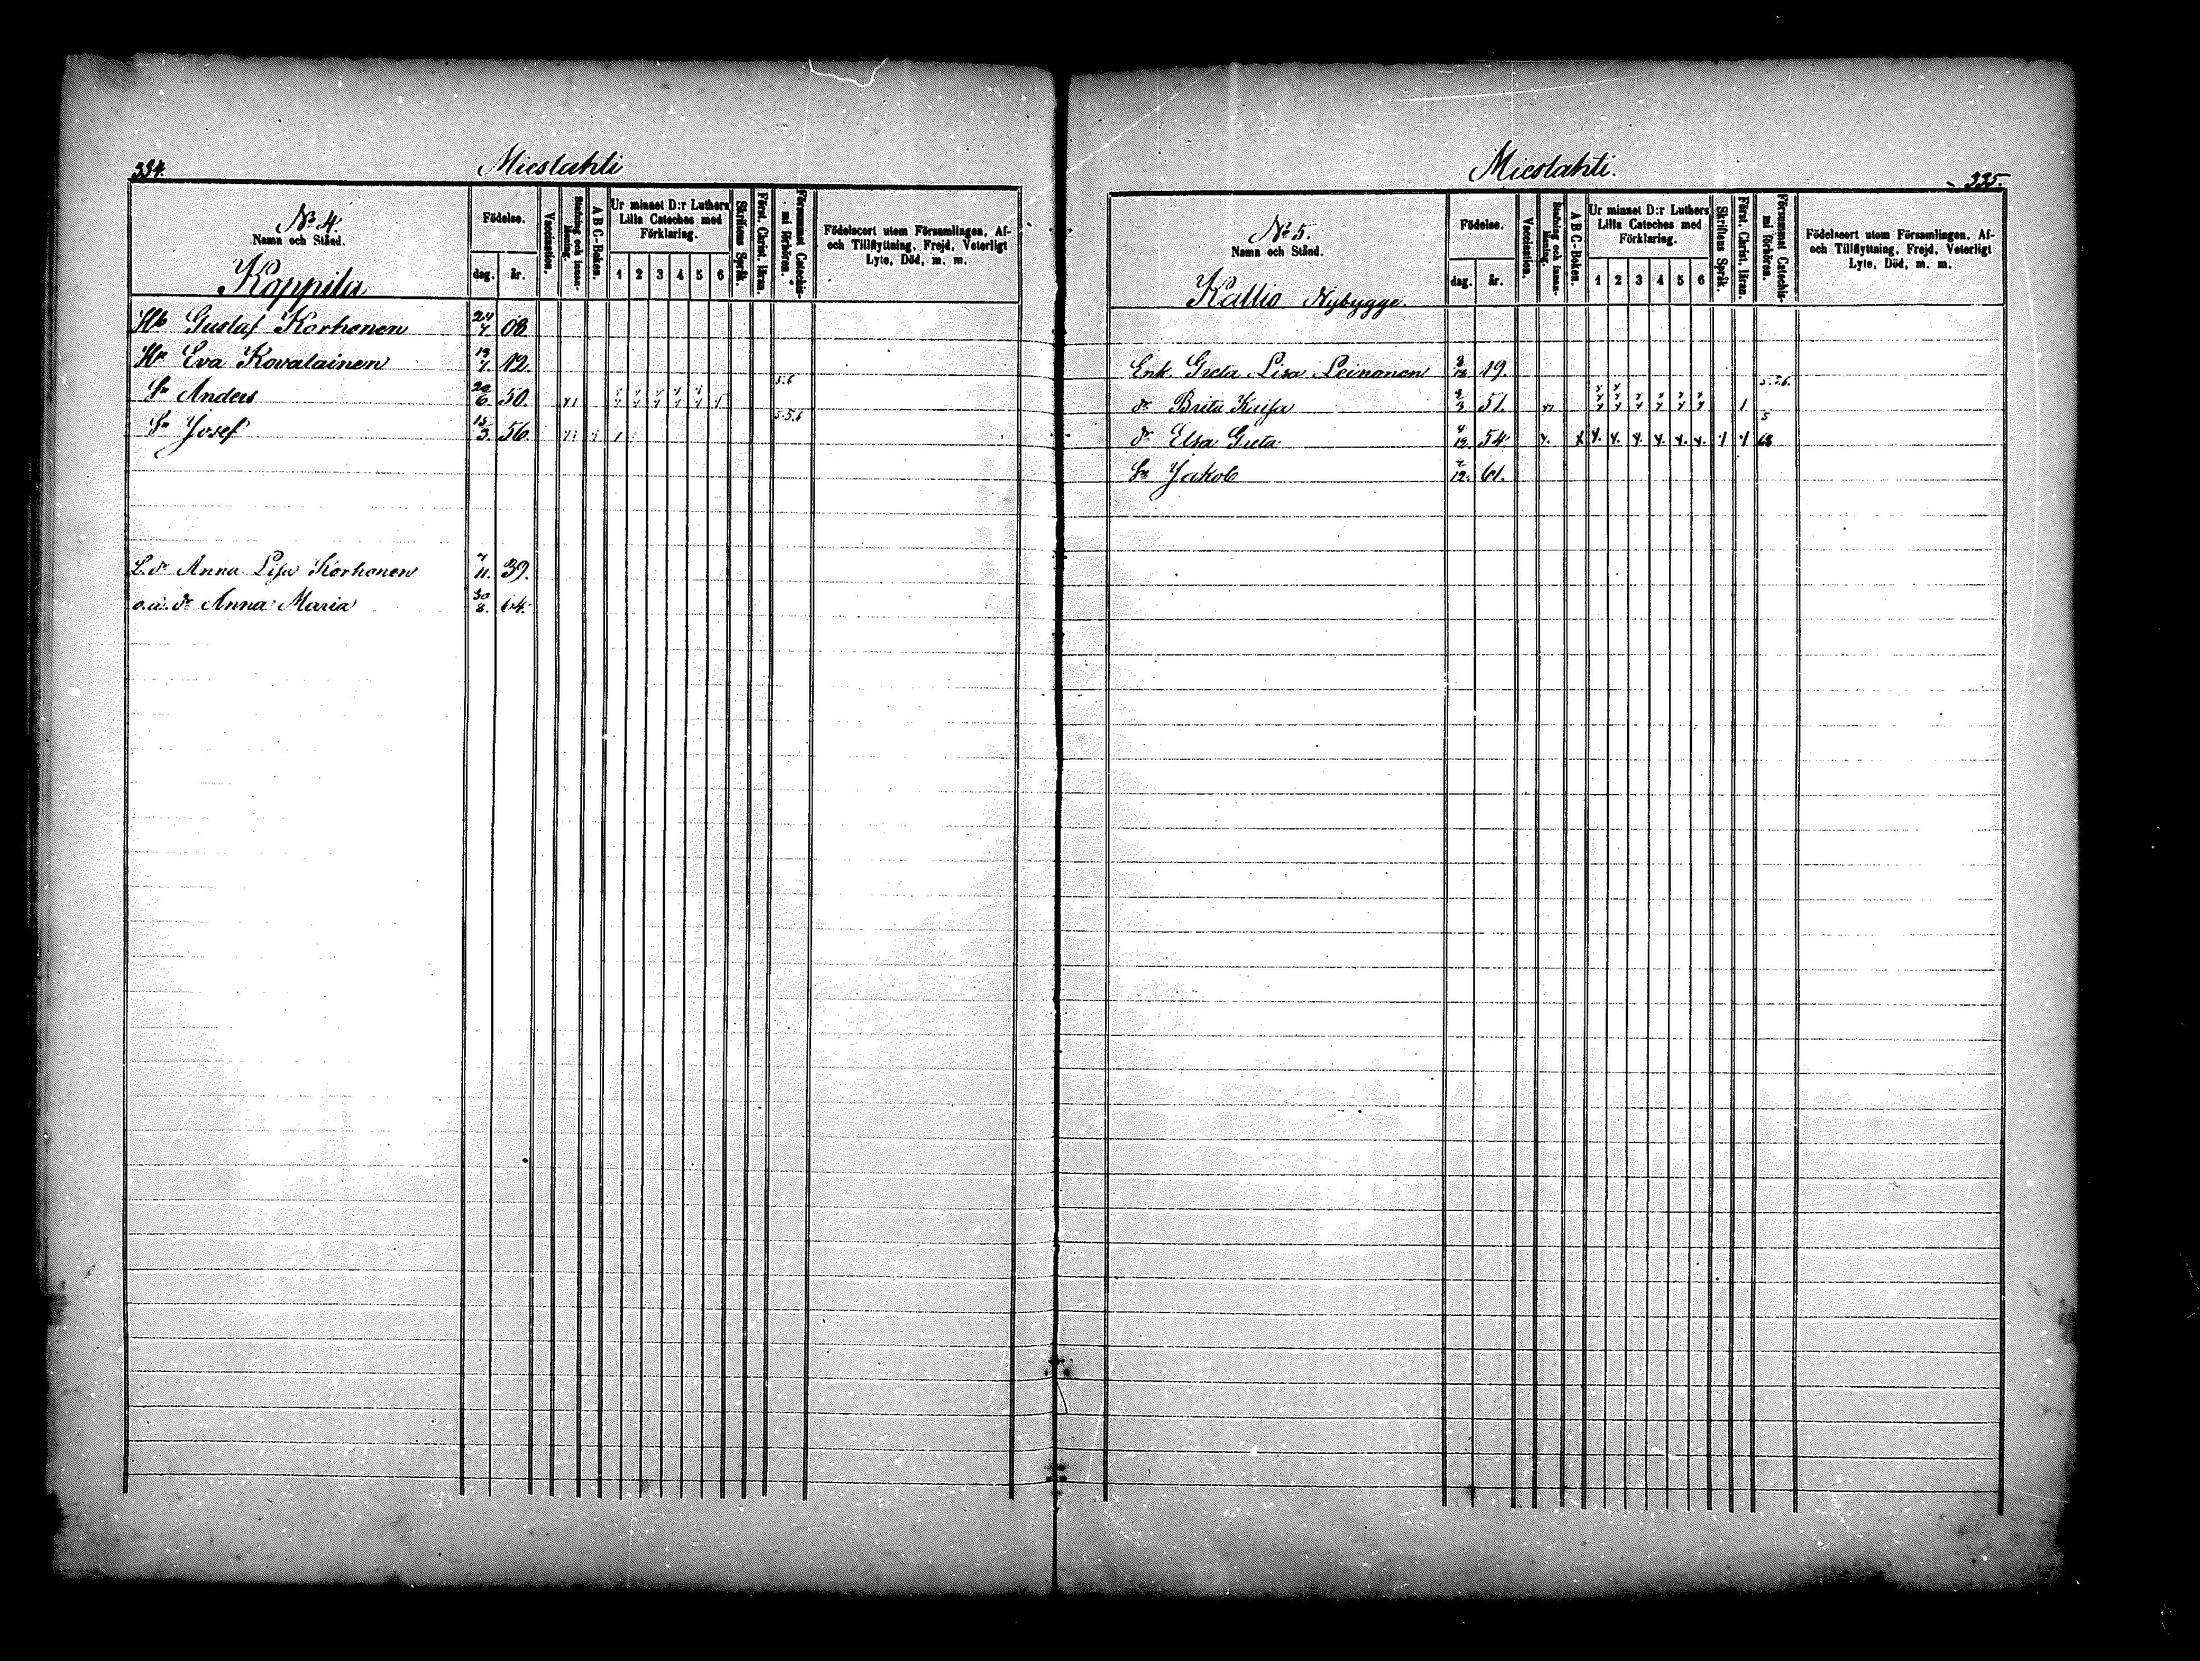 334.
Mieslahti
No 4.
Namn och Stånd.
Koppila
Födelse.
dag. år.
Vaccination.
Stafning och innan-läsning.
A B C-Boken.
Ur minnet D:r Luthers Lilla Cateches med Förklaring.
1 2 3 4 5 6
Skriftens Språk.
Först. Christ. läran.
Försummat Catechis-mi förhören.
Födelseort utom Församlingen, Af- och Tillflyttning, Frejd, Veterligt Lyte, Död, m. m.
Hb Gustaf Korhonen 24/7 08
Hu Eva Kovalainen 19/7. 12.
Sn Anders 20/6. 50. 5.6
Sn Josef 15/3. 56. 5.5.6
L. dr Anna Lisa Korhonen 7/11. 39.
o.ä. dr Anna Maria 30/8. 64.
Mieslahti.
335.
No 5.
Namn och Stånd.
Kallio Nybygge
Födelse.
dag. år.
Vaccination.
Stafning och innan-läsning.
A B C-Boken.
Ur minnet D:r Luthers Lilla Cateches med Förklaring.
1 2 3 4 5 6
Skriftens Språk.
Först. Christ. läran.
Försummat Catechis-mi förhören.
Födelseort utom Församlingen, Af- och Tillflyttning, Frejd, Veterligt Lyte, Död, m. m.
Enk. Greta Lisa Leinonen 19.
dr Brita Kaisa 51.
dr Elsa Greta 54
Sn Jakob 61.